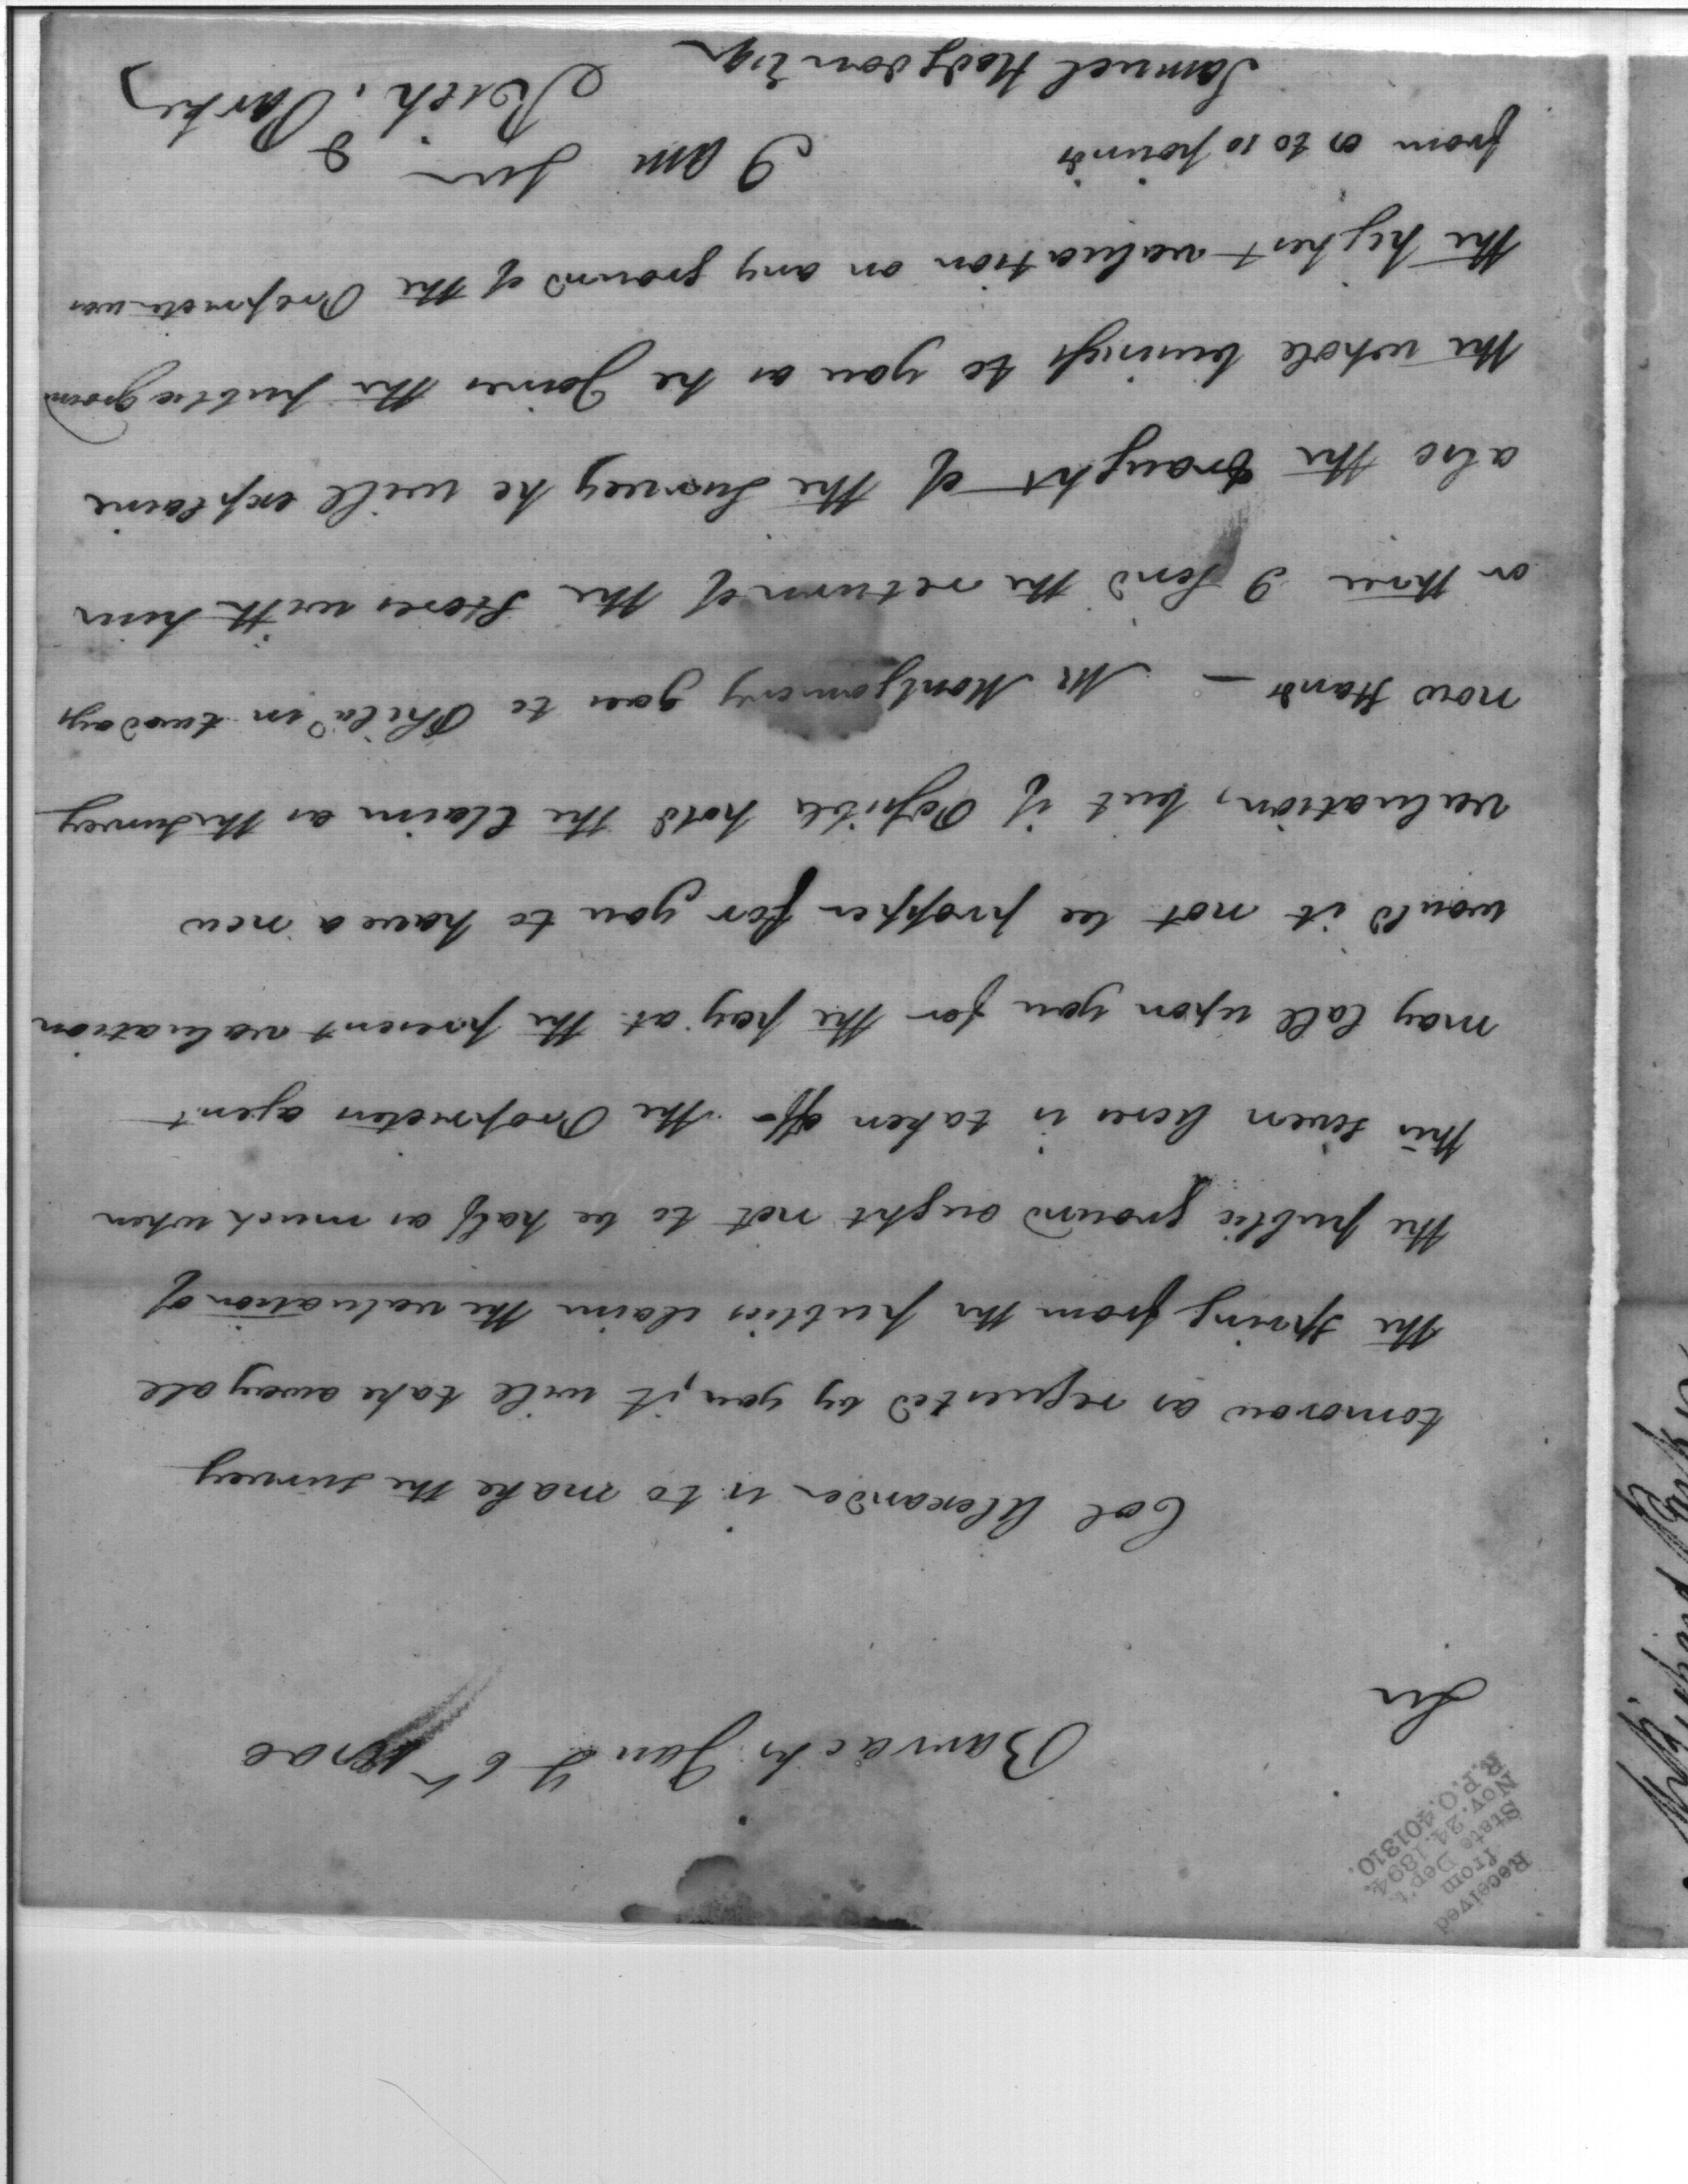 Received
from
State Dep't
Nov. 24, 1894.
R.P.O. 401310.
Barracks Jany 6th
Sir
Col Alexander is to make the survey
tomorow as requested by you, it will take away all
the spring from the publics claim the valuation of
the public ground ought not to be half as much when
this seven Acres is taken off - the Propreters agent
may Call upon you for the pay at the present valuation
would it not be propper for you to have a new
valuation, but if Possible hold the Claim as the survey
now stands — Mr Montgomery goes to Phila in two days
or three I send the return of the Stores with him
also the draught of the Survey he will explaine
the whole buisness to you as he Joines the public ground
the highest valuation on any ground of the Propreters was
from 8 to 10 pounds
I am Sir &
Samuel Hodgdon Esqr
Rich. Parker
Richard Parker